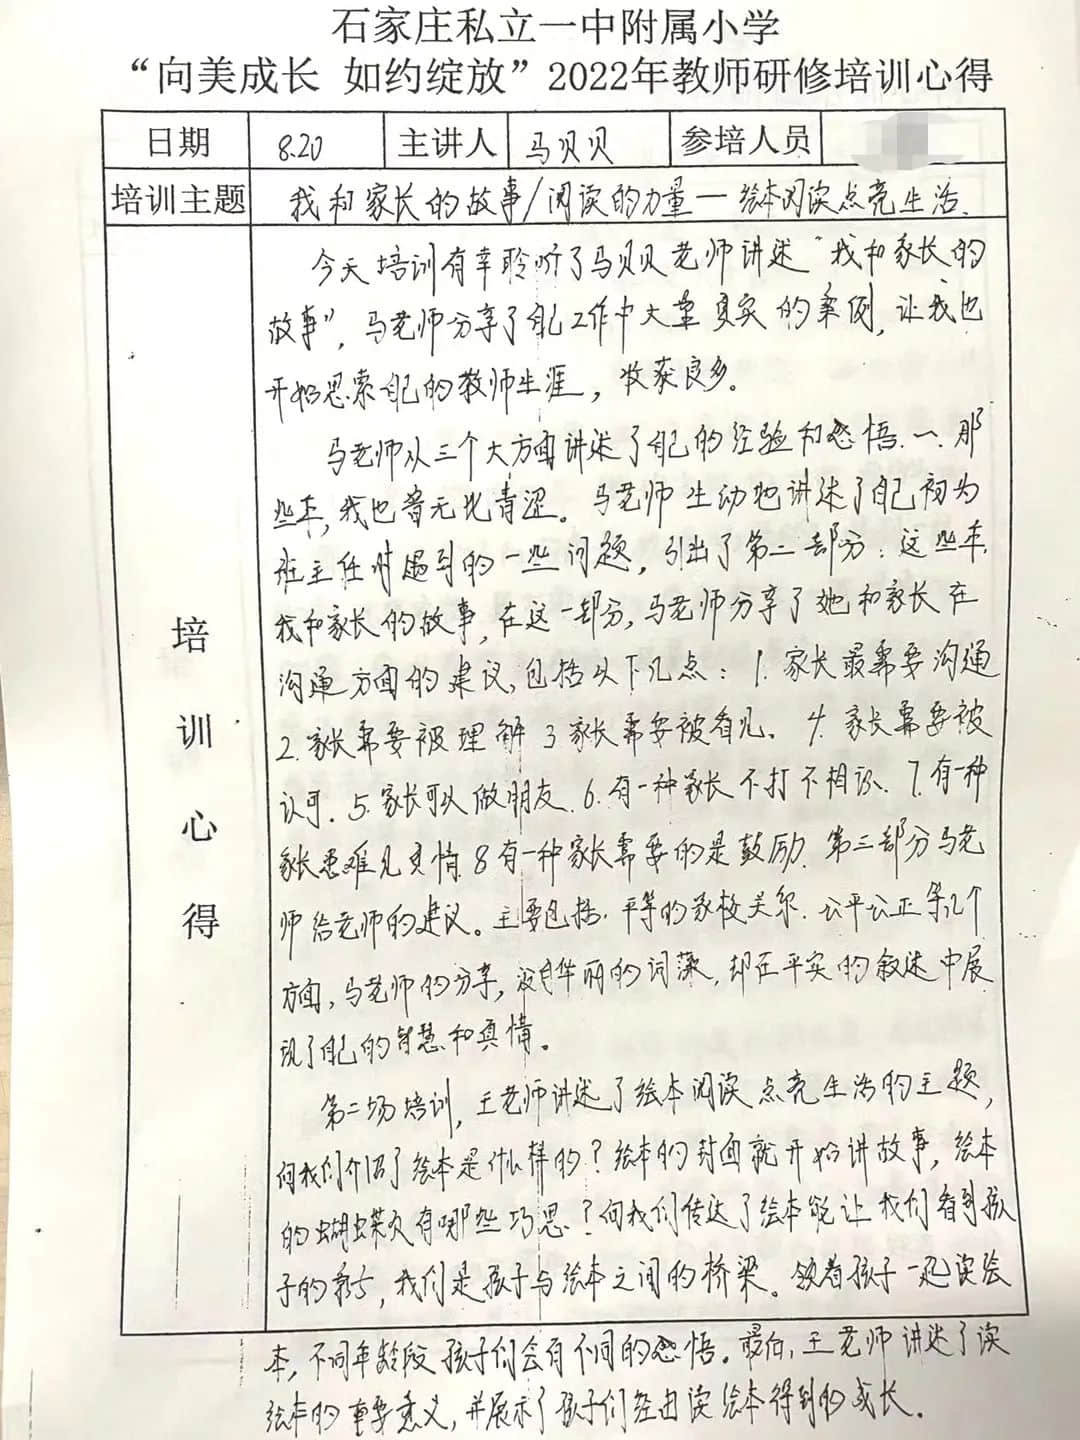 石家庄私立一中附属小学
“向美成长 如约绽放”2022年教师研修培训心得
日期 8.20 主讲人 马贝贝 参培人员
培训主题 我和家长的故事/阅读的力量—绘本阅读点亮生活.
培训心得
今天培训有幸聆听了马贝贝老师讲述“我和家长的
故事”,马老师分享了自己工作中大量真实的案例,让我也
开始思索自己的教师生涯,收获良多。
马老师从三个大方面讲述了自己的经验和感悟.一.那
些年,我也曾无比青涩。马老师生动地讲述了自己初为
班主任时遇到的一些问题,引出了第二部分:这些年.
我和家长的故事,在这一部分,马老师分享了她和家长在
沟通方面的建议,包括以下几点:1.家长最需要沟通
2.家长需要被理解 3家长需要被看见.4.家长需要被
认可.5.家长可以做朋友.6.有一种家长不打不相识.7.有一种
家长患难见真情.8有一种家长需要的是鼓励.第三部分马老
师给老师的建议。主要包括.平等的家校关系.公平公正等几个
方面,马老师的分享,没有华丽的词藻,却在平实的叙述中展
现了自己的智慧和真情。
第二场培训,王老师讲述了绘本阅读点亮生活的主题,
向我们介绍了绘本是什么样的?绘本的封面就开始讲故事,绘本
的蝴蝶页有哪些巧思?向我们传达了绘本能让我们看到孩
子的,我们是孩子与绘本之间的桥梁。领着孩子一起读绘
本,不同年龄段孩子们会有不同的感悟。最后,王老师讲述了读
绘本的重要意义,并展示了孩子们经由读绘本得到的成长。